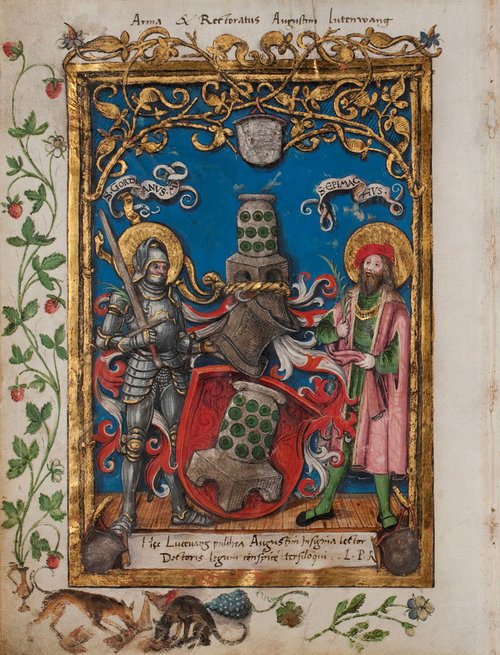 Arma & Rectoratus Augustini Lutenwang
S. GORDIANVS.
S. EPIMACHVS.
Hęc Lutewang pulchra Augustini Insignia lector
Doctoris legum conspice tersiloqui. L. P. R